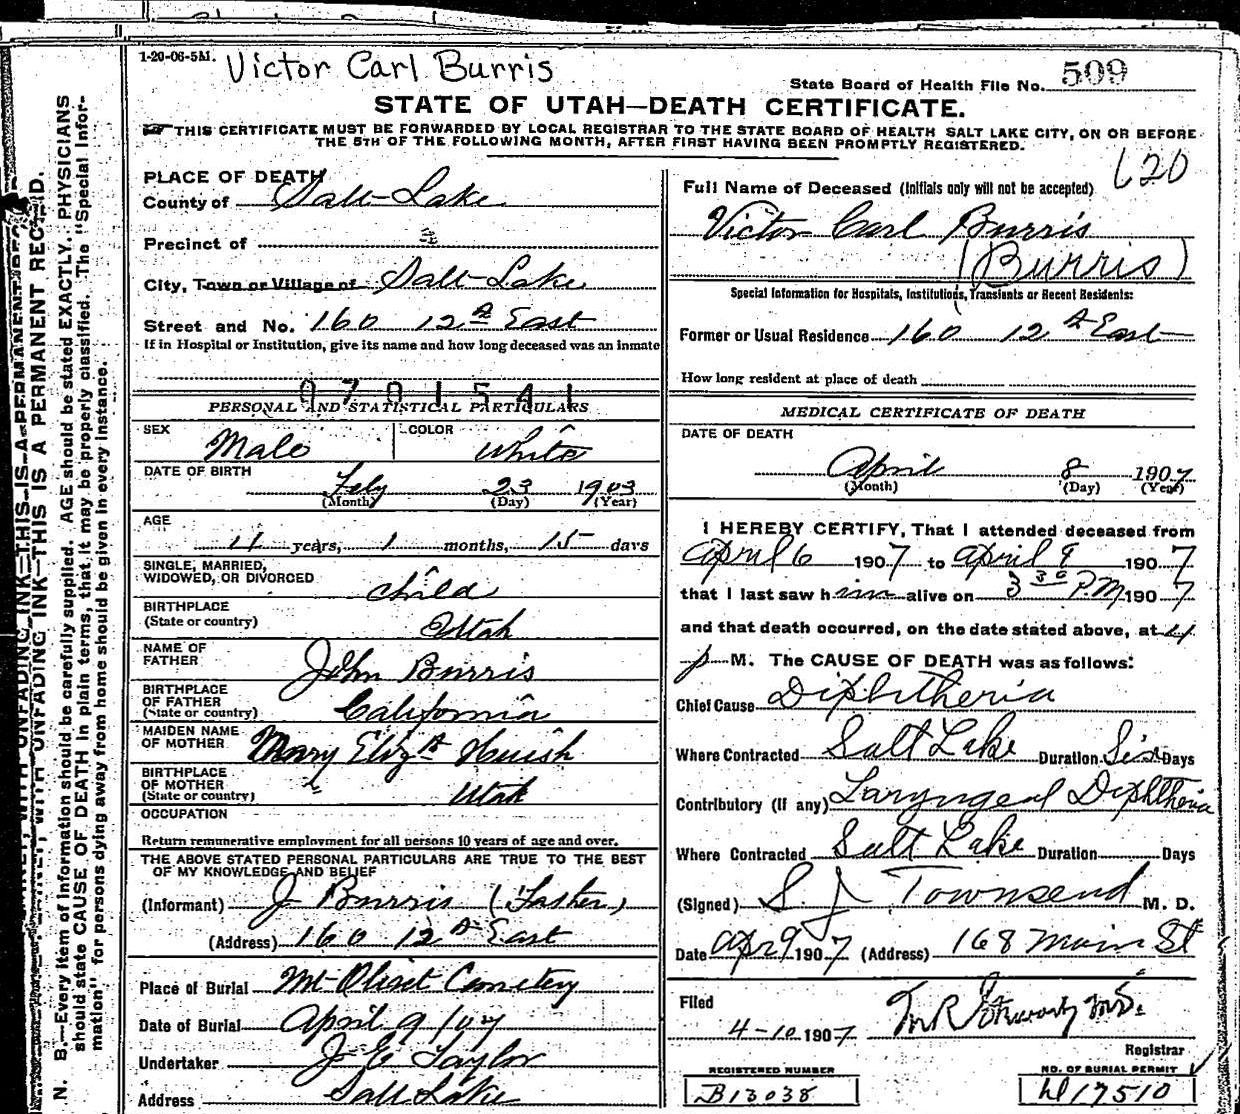 1-20-06-5M.
Victor Carl Burris
State Board of Health File No. 509
STATE OF UTAH—DEATH CERTIFICATE.
THIS CERTIFICATE MUST BE FORWARDED BY LOCAL REGISTRAR TO THE STATE BOARD OF HEALTH SALT LAKE CITY, ON OR BEFORE
THE 5TH OF THE FOLLOWING MONTH, AFTER FIRST HAVING BEEN PROMPTLY REGISTERED.
620
PLACE OF DEATH
County of Salt Lake
Precinct of
City, Town or Village of Salt Lake
Street and No. 160 12th East
If in Hospital or Institution, give its name and how long deceased was an inmate
9701541
PERSONAL AND STATISTICAL PARTICULARS
SEX Male COLOR White
DATE OF BIRTH
Feby 23 1903
(Month) (Day) (Year)
AGE
4 years, 1 months, 15 days
SINGLE, MARRIED,
WIDOWED, OR DIVORCED
child
BIRTHPLACE
(State or country) Utah
NAME OF
FATHER John Burris
BIRTHPLACE
OF FATHER
(State or country) California
MAIDEN NAME
OF MOTHER Mary Elizth Huish
BIRTHPLACE
OF MOTHER
(State or country) Utah
OCCUPATION
Return remunerative employment for all persons 10 years of age and over.
THE ABOVE STATED PERSONAL PARTICULARS ARE TRUE TO THE BEST
OF MY KNOWLEDGE AND BELIEF
(Informant) J Burris (Father)
(Address) 160 12th East
Place of Burial Mt Olivet Cemetery
Date of Burial April 9/07
Undertaker J E Taylor
Address Salt Lake
Full Name of Deceased (Initials only will not be accepted)
Victor Carl Burris
(Burris)
Special Information for Hospitals, Institutions, Transients or Recent Residents:
Former or Usual Residence 160 12th East
How long resident at place of death
MEDICAL CERTIFICATE OF DEATH
DATE OF DEATH
April 8 1907
(Month) (Day) (Year)
I HEREBY CERTIFY, That I attended deceased from
April 6 1907 to April 9 1907
that I last saw him alive on 3 30 P.M. 1907
and that death occurred, on the date stated above, at 4
p M. The CAUSE OF DEATH was as follows:
Chief Cause Diphtheria
Where Contracted Salt Lake Duration Six Days
Contributory (If any) Laryngeal Diphtheria
Where Contracted Salt Lake Duration Days
(Signed) S. J. Townsend M. D.
Date Apr 9 1907 (Address) 168 Main St
Filed
4-10 1907
Registrar
REGISTERED NUMBER
B13038
NO. OF BURIAL PERMIT
17510
N. B.—Every item of information should be carefully supplied. AGE should be stated EXACTLY. PHYSICIANS
should state CAUSE OF DEATH in plain terms, that it may be properly classified. The "Special Infor-
mation" for persons dying away from home should be given in every instance.
WITH UNFADING INK—THIS IS A PERMANENT RECORD.